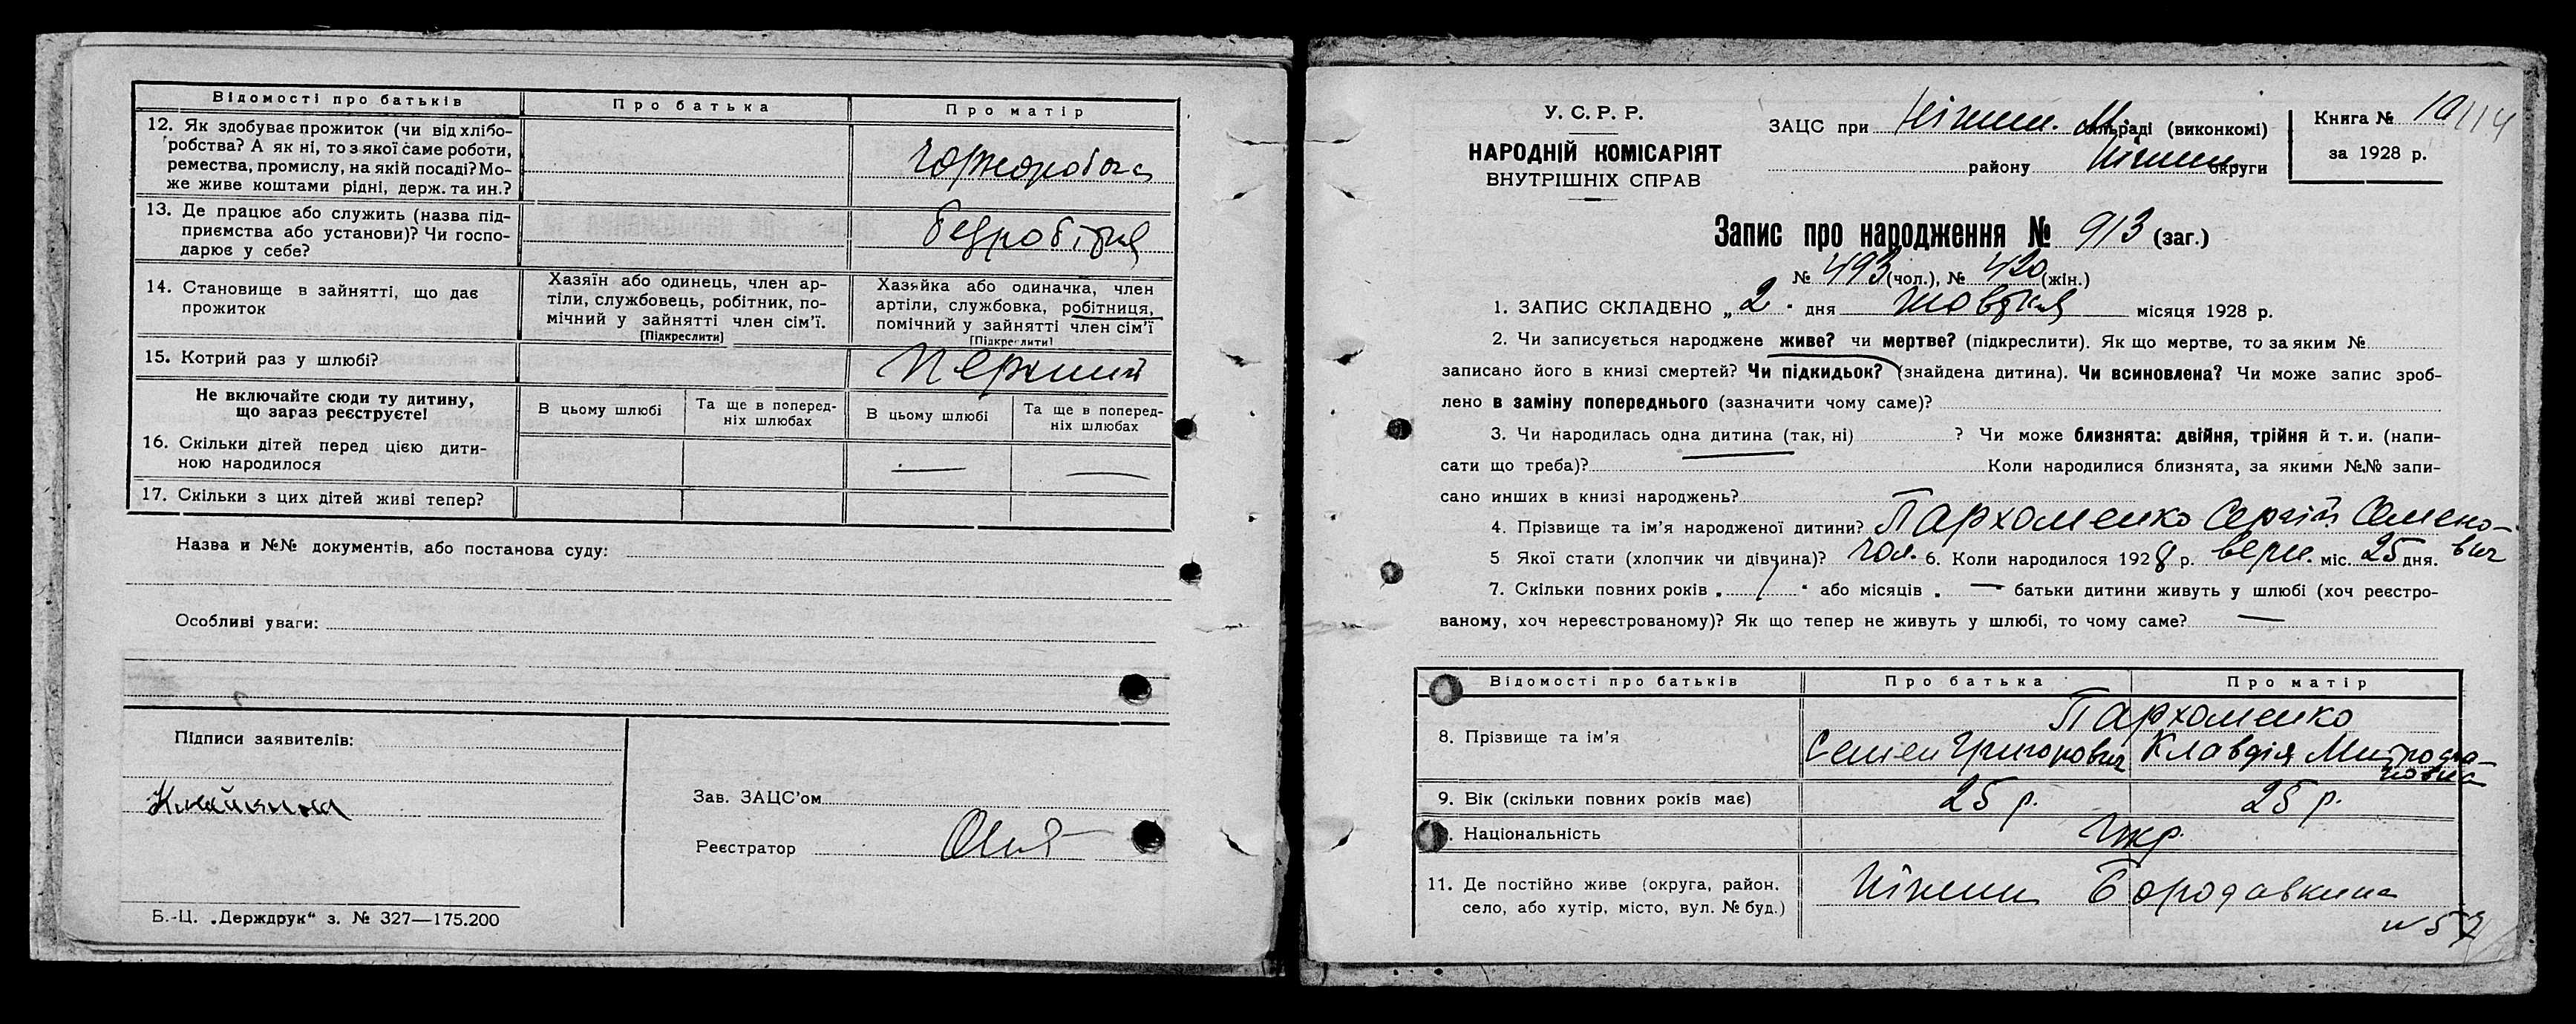 Відомості про батьків
Про батька
Про матір
12. Як здобуває прожиток (чи від хлібо-
робства? А як ні, то з якої саме роботи,
ремества, промислу, на якій посаді? Мо-
же живе коштами рідні, держ. та ин.?
чорноробоча
13. Де працює або служить (назва під-
приємства або установи)? Чи госпо-
дарює у себе?
безробітня
14. Становище в зайнятті, що дає
прожиток
Хазяїн або одинець, член ар-
тіли, службовець, робітник, по-
мічний у зайнятті член сім'ї.
[Підкреслити]
Хазяйка або одиначка, член
артіли, службовка, робітниця,
помічний у зайнятті член сім'ї
[Підкреслити]
15. Котрий раз у шлюбі?
перший
Не включайте сюди ту дитину,
що зараз реєструєте!
В цьому шлюбі
Та ще в поперед-
ніх шлюбах
В цьому шлюбі
Та ще в поперед-
ніх шлюбах
16. Скільки дітей перед цією дити-
ною народилося
—
—
17. Скільки з цих дітей живі тепер?
Назва и №№ документів, або постанова суду:
Особливі уваги:
Підписи заявителів:
Зав. ЗАЦС'ом
Реєстратор
Б.-Ц. „Держдрук" з. № 327—175.200
У. С. Р. Р.
НАРОДНІЙ КОМІСАРІЯТ
ВНУТРІШНІХ СПРАВ
ЗАЦС при Ніжин. М. сільраді (виконкомі)
району Ніжин округи
Книга № 10
114
за 1928 р.
Запис про народження № 913 (заг.)
№ 493 (чол.), № 420 (жін.)
1. ЗАПИС СКЛАДЕНО „2" дня жовтня місяця 1928 р.
2. Чи записується народжене живе? чи мертве? (підкреслити). Як що мертве, то за яким №
записано його в книзі смертей? Чи підкидьок? (знайдена дитина). Чи всиновлена? Чи може запис зроб-
лено в заміну попереднього (зазначити чому саме)?
3. Чи народилась одна дитина (так, ні) ? Чи може близнята: двійня, трійня й т. и. (напи-
сати що треба)? Коли народилися близнята, за якими №№ запи-
сано инших в книзі народжень?
4. Прізвище та ім'я народженої дитини? Пархоменко Сергій Семено-
вич
5 Якої стати (хлопчик чи дівчина)? чол. 6. Коли народилося 1928 р. верес. міс. 25 дня.
7. Скільки повних років „ 1 " або місяців „ — " батьки дитини живуть у шлюбі (хоч реєстро-
ваному, хоч нереєстрованому)? Як що тепер не живуть у шлюбі, то чому саме? —
Відомості про батьків
Про батька
Про матір
8. Прізвище та ім'я
Пархоменко
Семен Григорович
Клавдія Митрофа-
новна
9. Вік (скільки повних років має)
25 р.
25 р.
Національність
Укр.
11. Де постійно живе (округа, район.
село, або хутір, місто, вул. № буд.)
Ніжин Бородавкина
№ 57